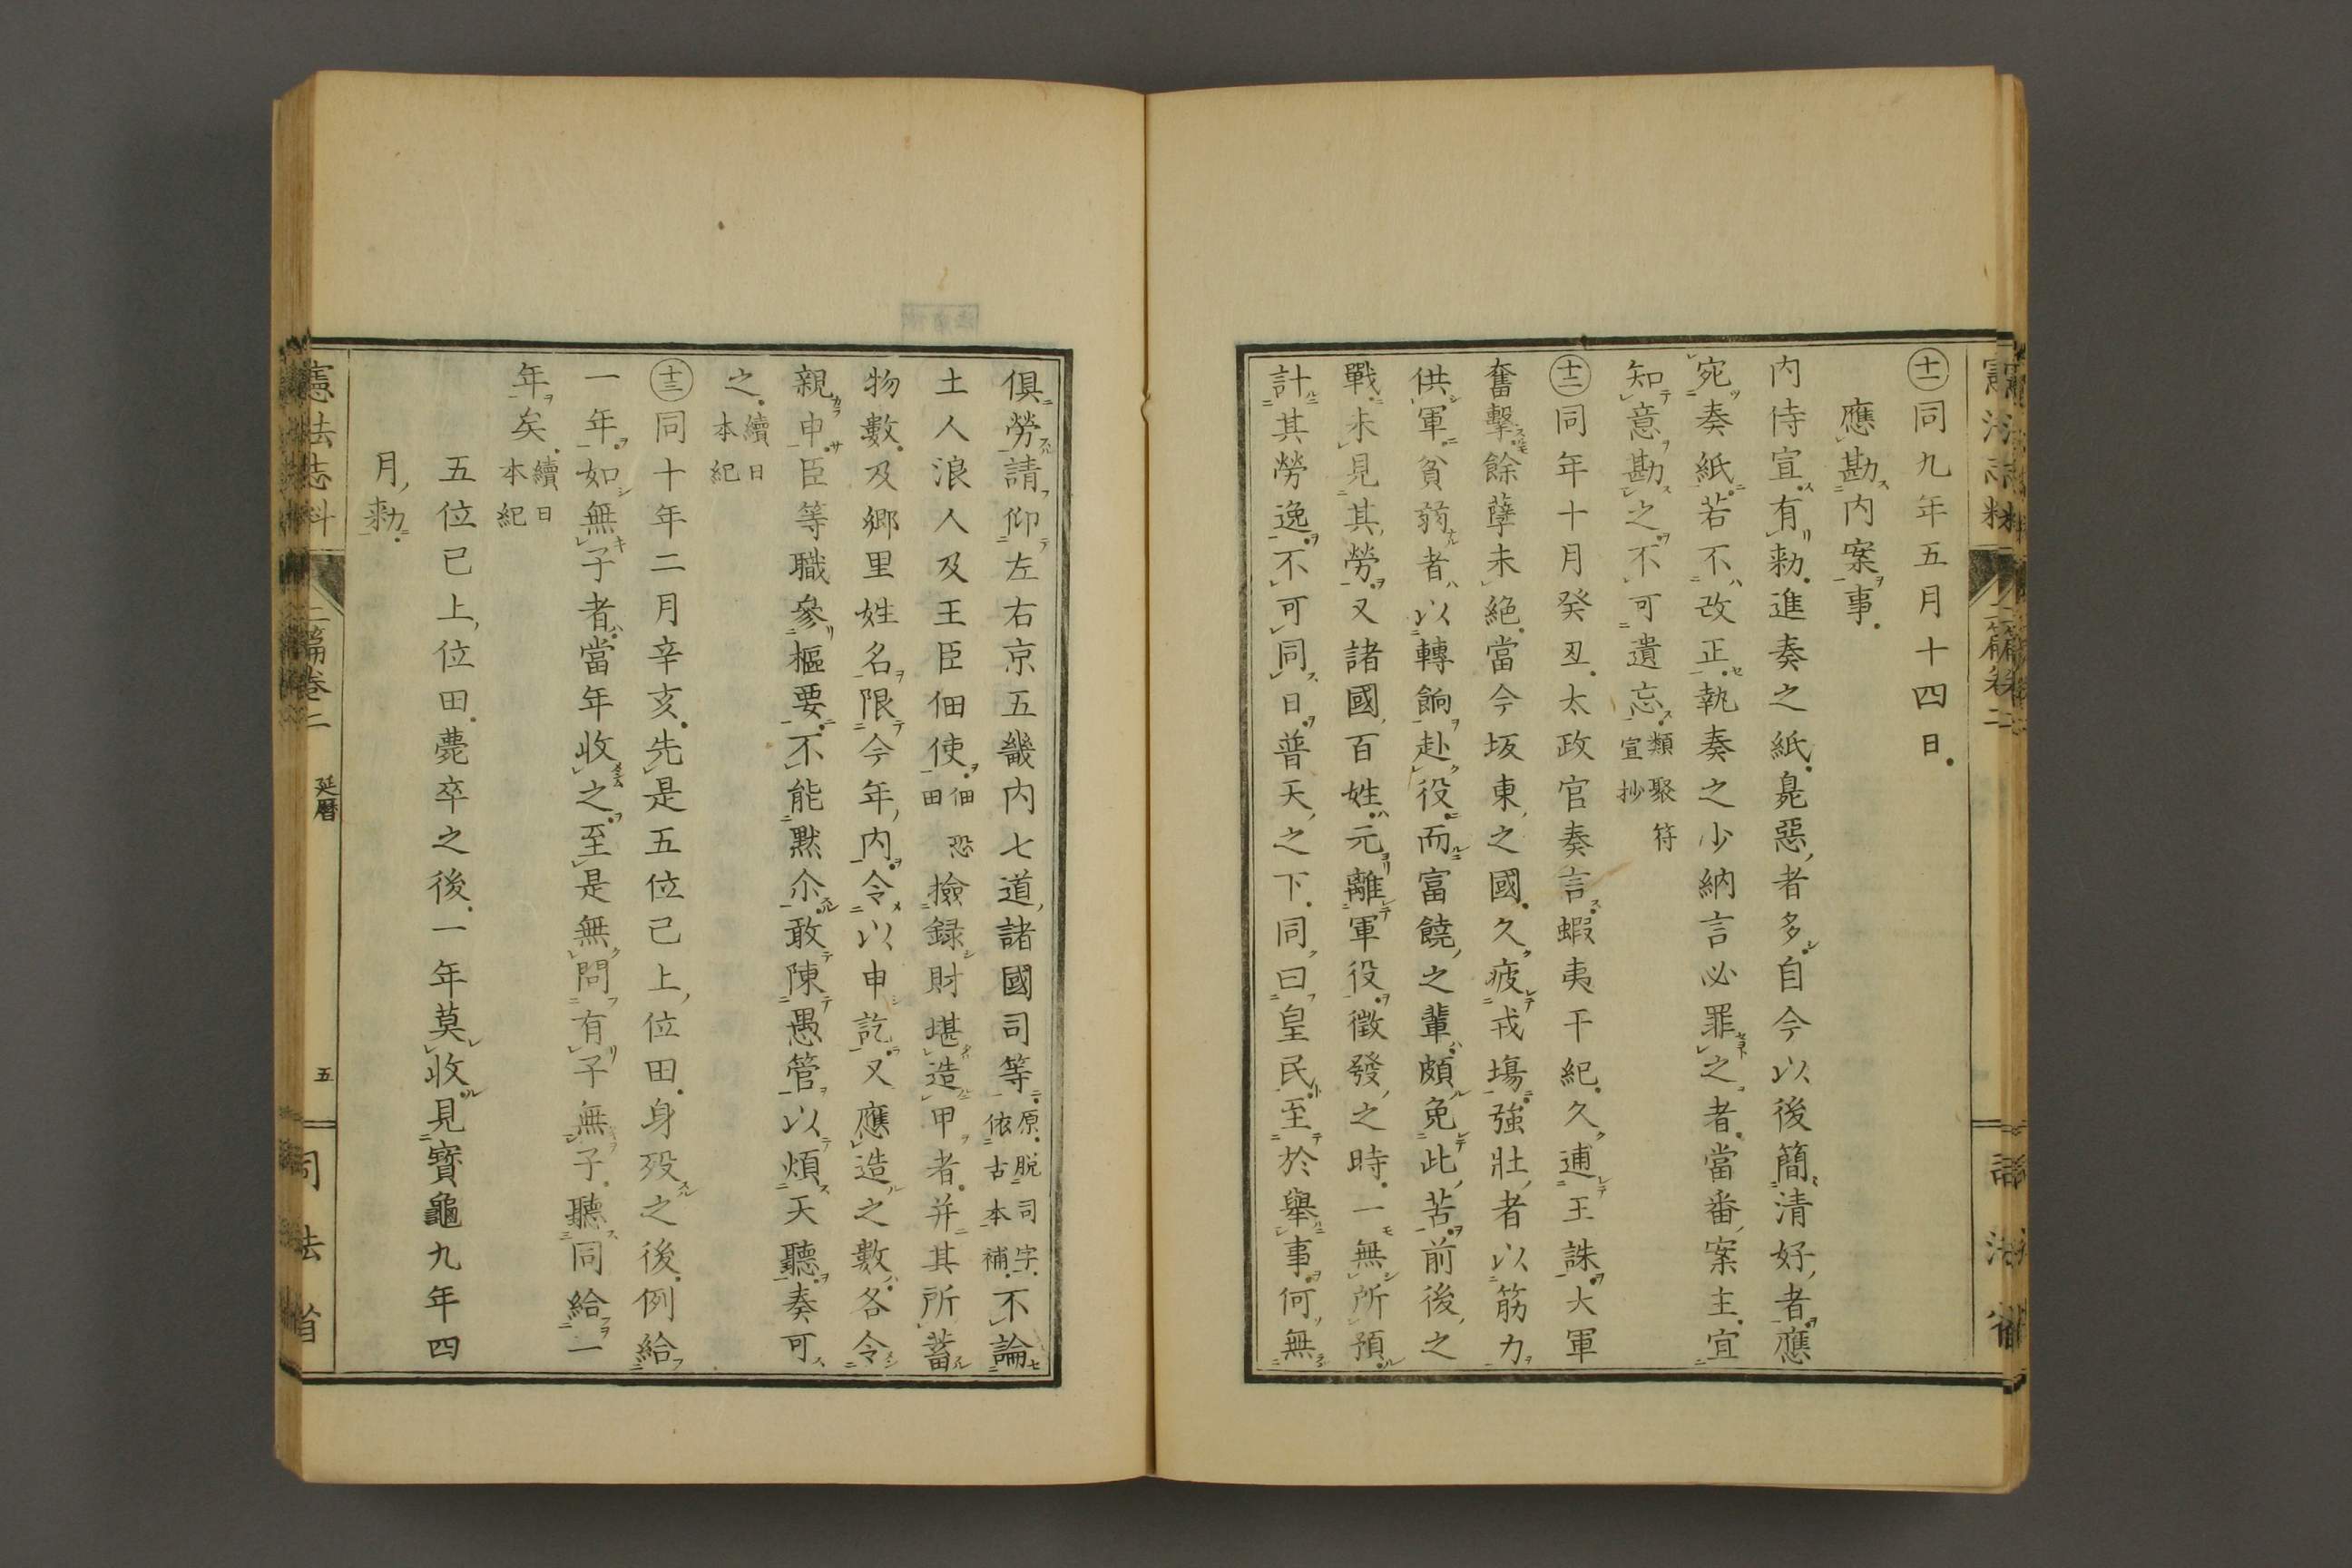 ㊉一同九年五月十四日
應勘内案事
内侍宣有勅進奏之紙麁惡者多自今以後簡清好者應
宛奏紙若不改正執奏之少納言必罪之者當番案主宜
知意勘之不可遺忘類聚符宣抄
十二同年十月癸丑太政官奏言蝦夷干紀久逋王誅大軍
奮擊餘孽未絶當今坂東之國久疲戎場強壯者以筋力
供軍貧弱者以轉餉赴役而富饒之輩頗免此苦前後之
戰未見其勞又諸國百姓元離軍役徵發之時一無所預
計其勞逸不可同日普天之下同曰皇民至於舉事何無
俱勞請仰左右京五畿内七道諸國司等原脱司字依古本補不論
土人浪人及王臣佃使佃恐田撿録財堪造甲者并其所蓄
物數及郷里姓名限今年内令以申訖又應造之數各令
親申臣等職參樞要不能默尒敢陳愚管以煩天聽奏可
之續日本紀
十三同十年二月辛亥先是五位已上位田身歿之後例給
一年如無子者當年收之至是無問有子無子聽同給一
年矣續日本紀
五位已上位田薨卒之後一年莫收見寶龜九年四
月勅
憲法志料
二篇卷二
延暦
五
司法省